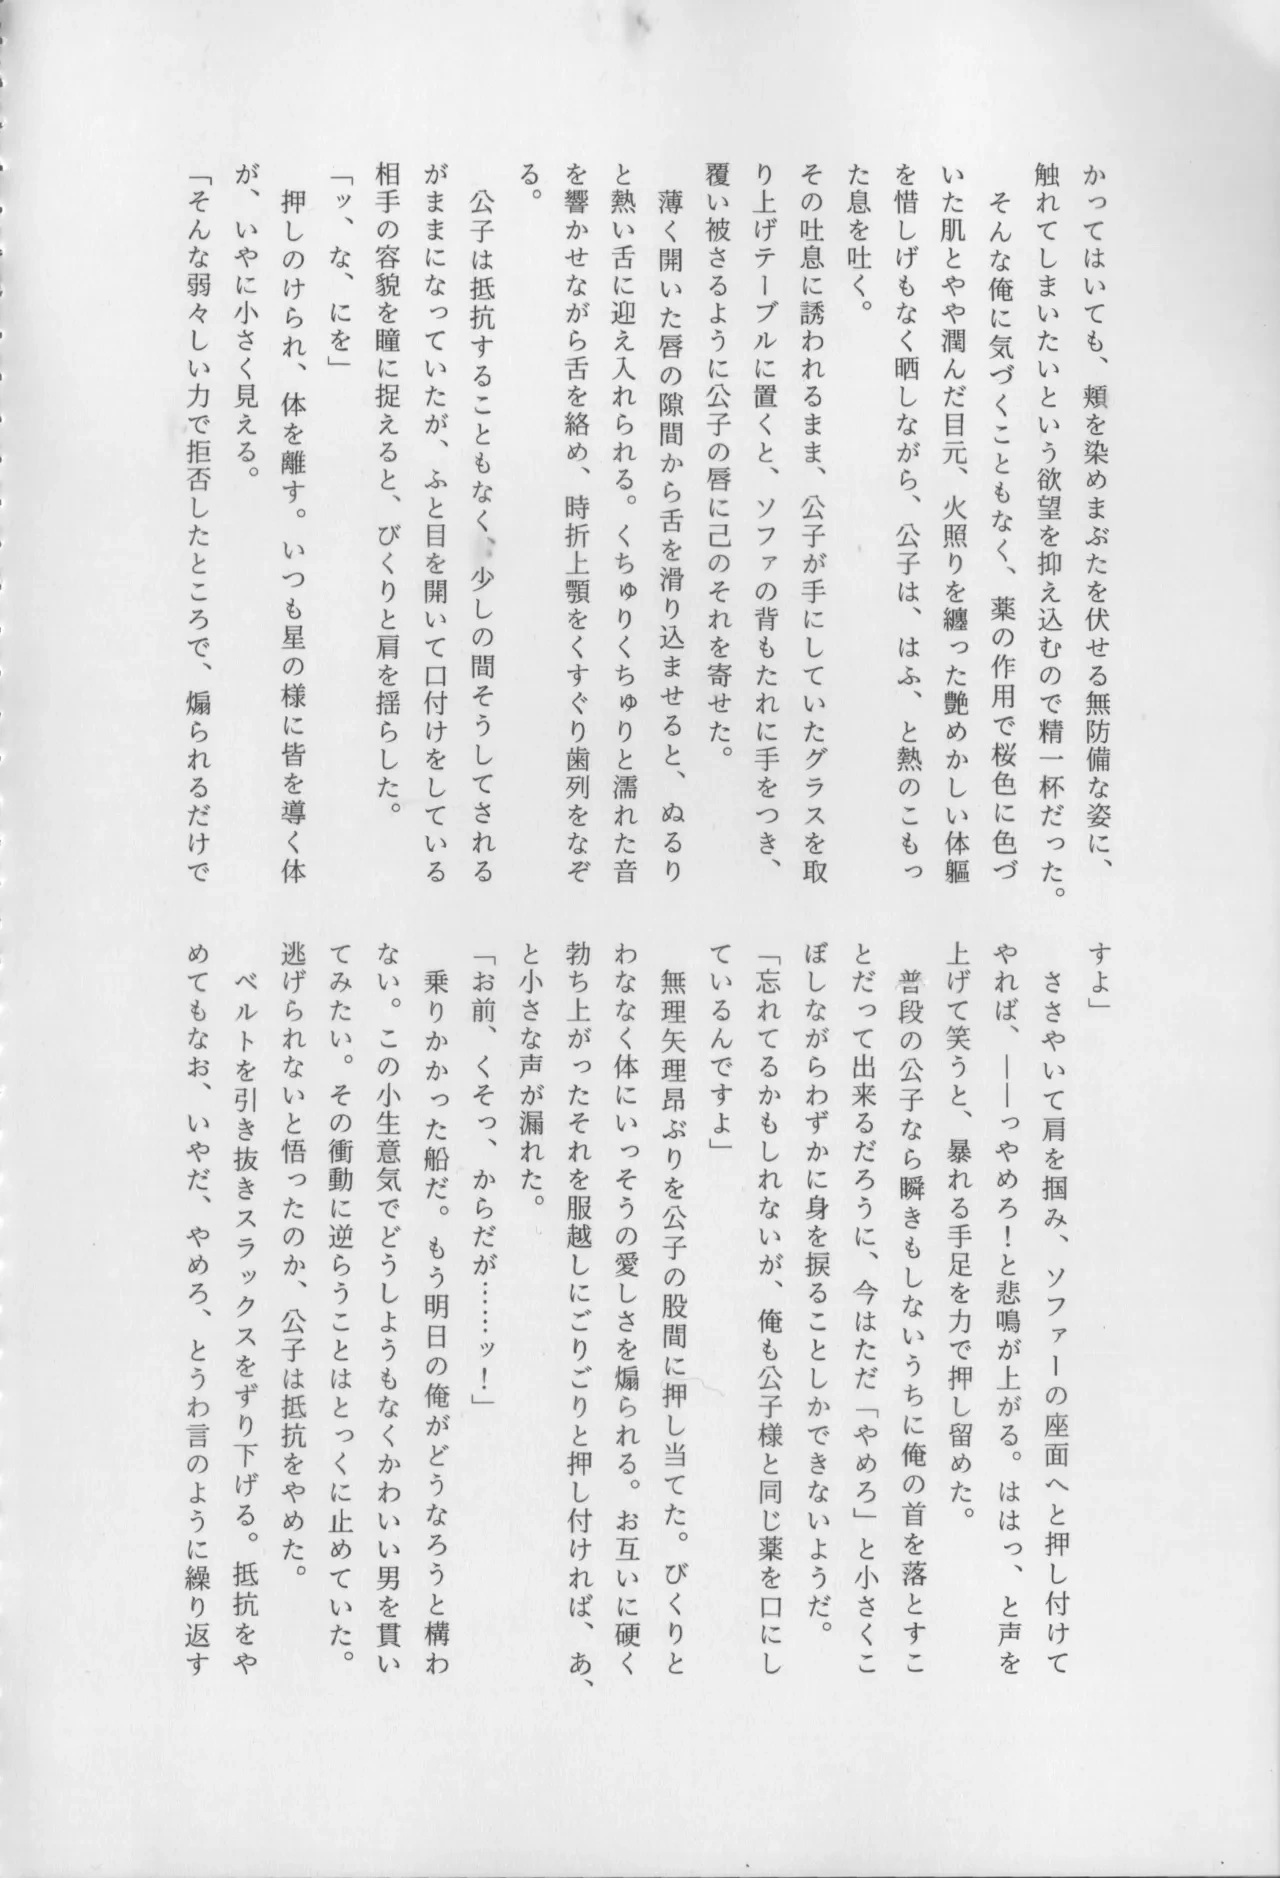 かってはいても、頬を染めまぶたを伏せる無防備な姿に、
触れてしまいたいという欲望を抑え込むので精一杯だった。
　そんな俺に気づくこともなく、薬の作用で桜色に色づ
いた肌とやや潤んだ目元、火照りを纏った艶めかしい体軀
を惜しげもなく晒しながら、公子は、はふ、と熱のこもっ
た息を吐く。
その吐息に誘われるまま、公子が手にしていたグラスを取
り上げテーブルに置くと、ソファの背もたれに手をつき、
覆い被さるように公子の唇に己のそれを寄せた。
　薄く開いた唇の隙間から舌を滑り込ませると、ぬるり
と熱い舌に迎え入れられる。くちゅりくちゅりと濡れた音
を響かせながら舌を絡め、時折上顎をくすぐり歯列をなぞ
る。
　公子は抵抗することもなく、少しの間そうしてされる
がままになっていたが、ふと目を開いて口付けをしている
相手の容貌を瞳に捉えると、びくりと肩を揺らした。
「ッ、な、にを」
　押しのけられ、体を離す。いつも星の様に皆を導く体
が、いやに小さく見える。
「そんな弱々しい力で拒否したところで、煽られるだけで
すよ」
　ささやいて肩を掴み、ソファーの座面へと押し付けて
やれば、――っやめろ！と悲鳴が上がる。ははっ、と声を
上げて笑うと、暴れる手足を力で押し留めた。
　普段の公子なら瞬きもしないうちに俺の首を落とすこ
とだって出来るだろうに、今はただ「やめろ」と小さくこ
ぼしながらわずかに身を捩ることしかできないようだ。
「忘れてるかもしれないが、俺も公子様と同じ薬を口にし
ているんですよ」
　無理矢理昂ぶりを公子の股間に押し当てた。びくりと
わななく体にいっそうの愛しさを煽られる。お互いに硬く
勃ち上がったそれを服越しにごりごりと押し付ければ、あ、
と小さな声が漏れた。
「お前、くそっ、からだが……ッ！」
　乗りかかった船だ。もう明日の俺がどうなろうと構わ
ない。この小生意気でどうしようもなくかわいい男を貫い
てみたい。その衝動に逆らうことはとっくに止めていた。
逃げられないと悟ったのか、公子は抵抗をやめた。
　ベルトを引き抜きスラックスをずり下げる。抵抗をや
めてもなお、いやだ、やめろ、とうわ言のように繰り返す